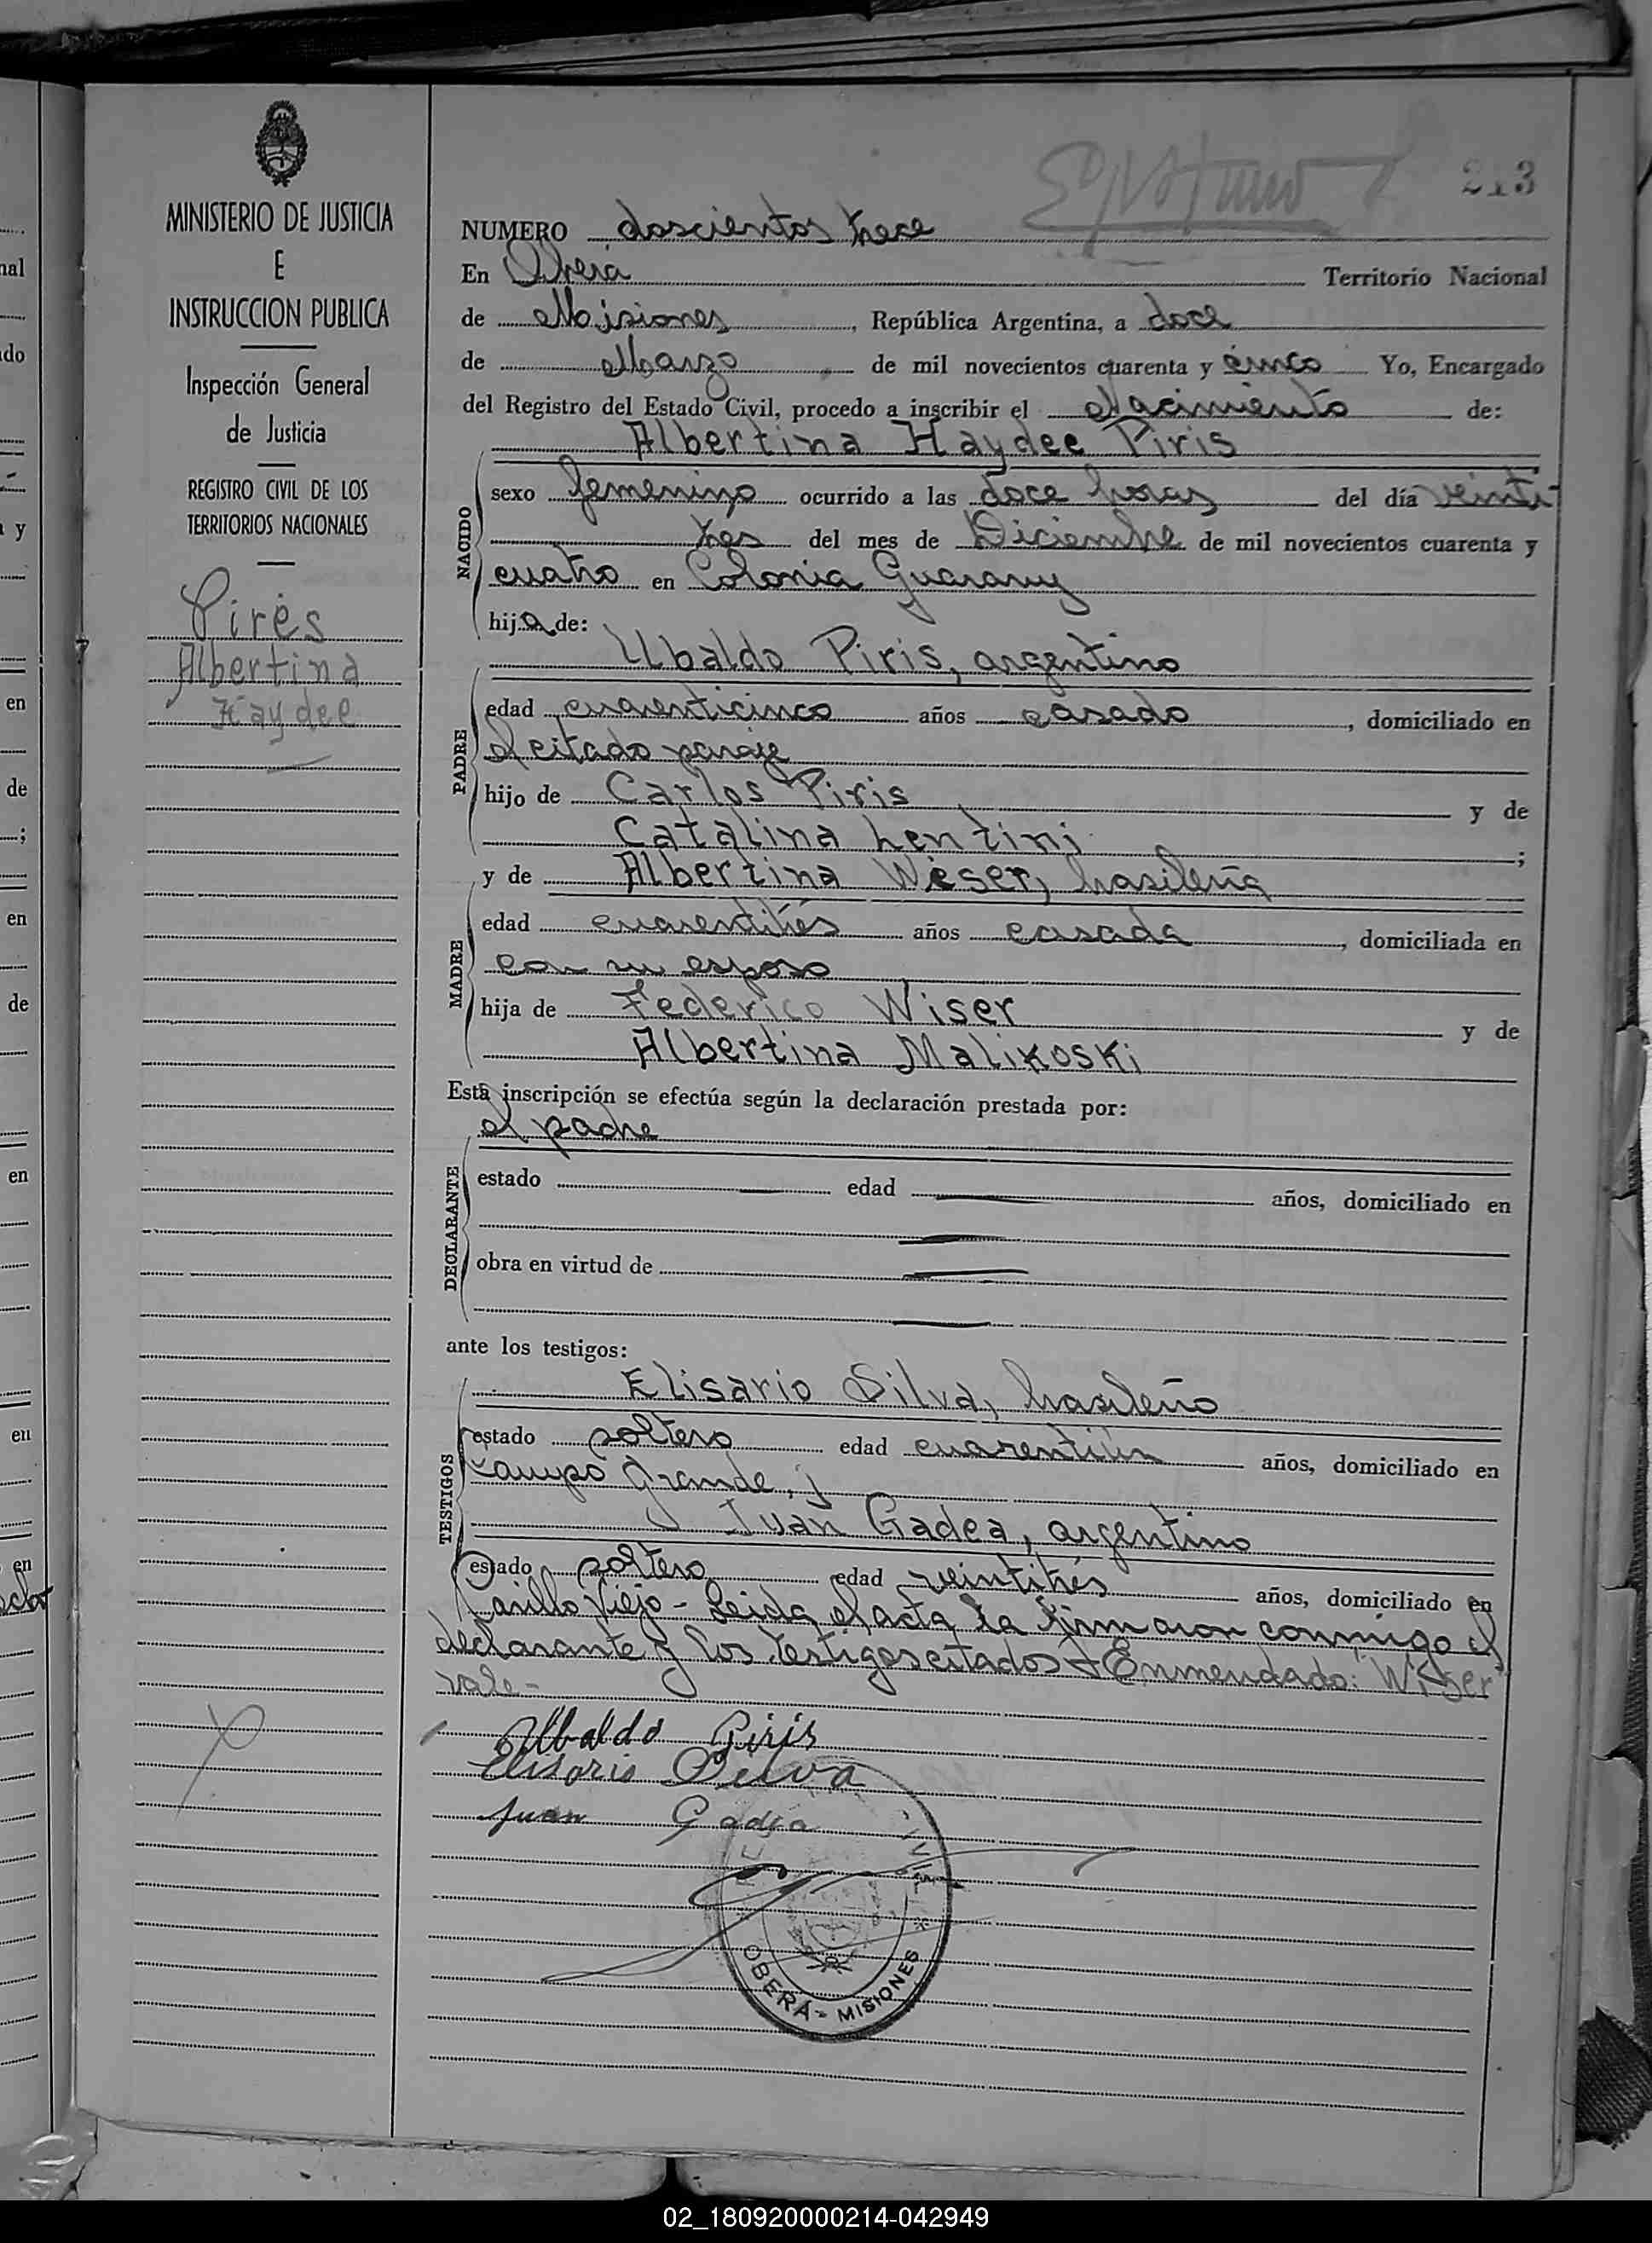 MINISTERIO DE JUSTICIA
E
INSTRUCCION PUBLICA
Inspección General
de Justicia
REGISTRO CIVIL DE LOS
TERRITORIOS NACIONALES
Pires
Albertina
Haydee
213
NUMERO doscientos trece
En Oberá Territorio Nacional
de Misiones, República Argentina, a doce
de Marzo de mil novecientos cuarenta y cinco Yo, Encargado
del Registro del Estado Civil, procedo a inscribir el Nacimiento de:
Albertina Haydee Piris
NACIDO
sexo femenino ocurrido a las doce horas del día veinti-
tres del mes de Diciembre de mil novecientos cuarenta y
cuatro en Colonia Guarany
hija de:
Ubaldo Piris, argentino
PADRE
edad cuarenticinco años casado, domiciliado en
el citado paraje
hijo de Carlos Piris y de
Catalina Lentini;
y de Albertina Wiser, brasileña
MADRE
edad cuarentitrés años casada, domiciliada en
con su esposo
hija de Federico Wiser y de
Albertina Malikoski
Esta inscripción se efectúa según la declaración prestada por:
el padre
DECLARANTE
estado edad años, domiciliado en
obra en virtud de
ante los testigos:
TESTIGOS
Elisario Silva, brasileño
estado soltero edad cuarentiún años, domiciliado en
Campo Grande, y
Juan Gadea, argentino
estado soltero edad veintitrés años, domiciliado en
Viejo - Leida el acta la firmaron conmigo el
declarante y los testigos citados - Enmendado: "Wiser"
vale -
Ubaldo Piris
Elisario Silva
Juan Gadea
OBERÁ - MISIONES
nal
do
a y
en
de
;
en
de
en
en
en
02_180920000214-042949